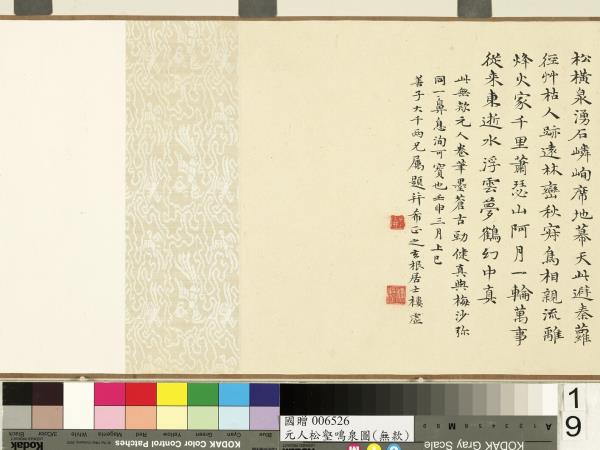 松橫泉湧石嶙峋席地幕天此避秦蘿
徑艸枯人跡遠林巒秋寂鳥相親流離
烽火家千里蕭瑟山阿月一輪萬事
從來東逝水浮雲夢鶴幻中真
此無款元人卷筆墨蒼古勁健真與梅沙弥
同一鼻息洵可寶也壬申三月上巳
善子大千兩兄屬題并希正之玄根居士樓虛
19
國贈 006526
元人松壑鳴泉圖(無款)
Kodak Color Control Patches
Blue Cyan Green Yellow Red Magenta White 3/Color Black
KODAK Gray Scale
A 1 2 3 4 5 6 M 8 9